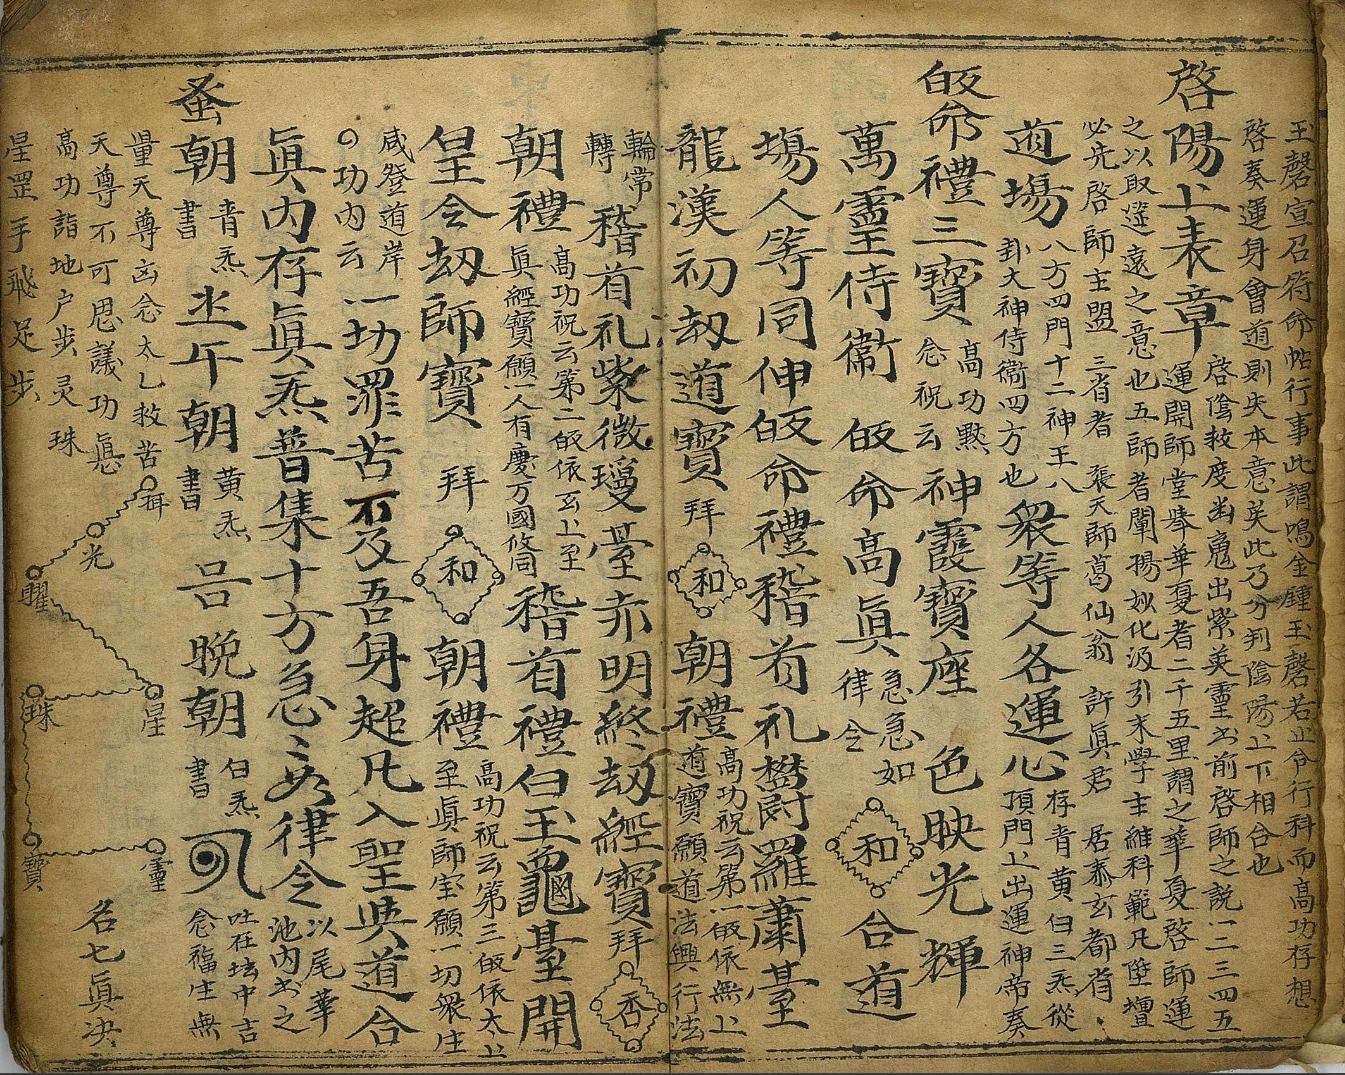 玉磬宣召符命帖行事此謂鳴金鍾玉磬若止令行科而高功存想
啓奏運身會道則失本意矣此乃分判陰陽上下相合也
啓陽上表章
啓陰救度幽魂出紫英靈出前啓師之説一二三四五
運開師堂攀華夏者二千五里謂之華夏啓師運
之以取選遠之意也五師者闡揚妙化汲引末學主維科範凡陞壇
必先啓師主盟 三省者 張天師葛仙翁 許真君 居泰玄都省
道場
八方四門十二神王八
卦大神侍衛四方也
衆等人各運心
存青黃白三炁從
頂門上出運神帝奏
皈命禮三寶
高功黙
念祝云
神霞寶座 色映光輝
萬靈侍衛 皈命高真
急急如
律令
和
合道
場人等同伸皈命禮稽首礼欝羅蕭臺
龍漢初劫道寶
拜
和
朝禮
高功祝云第一皈依無上
道寶願道法興行法
輪常
轉
稽首礼紫微瓊臺赤明終劫經寶
拜
香
朝禮
高功祝云第二皈依玄上至
真經寶願一人有慶万國攸同
稽首禮白玉龜臺開
皇令劫師寶
拜
和
朝禮
高功祝云第三皈依太上
至真師宝願一切衆生
咸登道岸
功内云
一切罪苦及吾身超凡入聖與道合
真内存真炁普集十方急々如律令
以尾華
池内出之
蚤朝
青炁
書
㞢午朝
黃炁
書
吕晚朝
白炁
書
吐在坛中吉
念福生無
量天尊凶念太乙救苦
天尊不可思議功惪
高功詣地户步灵珠
星罡手飛足步
光
曜
星
珠
寶
靈
名七真决